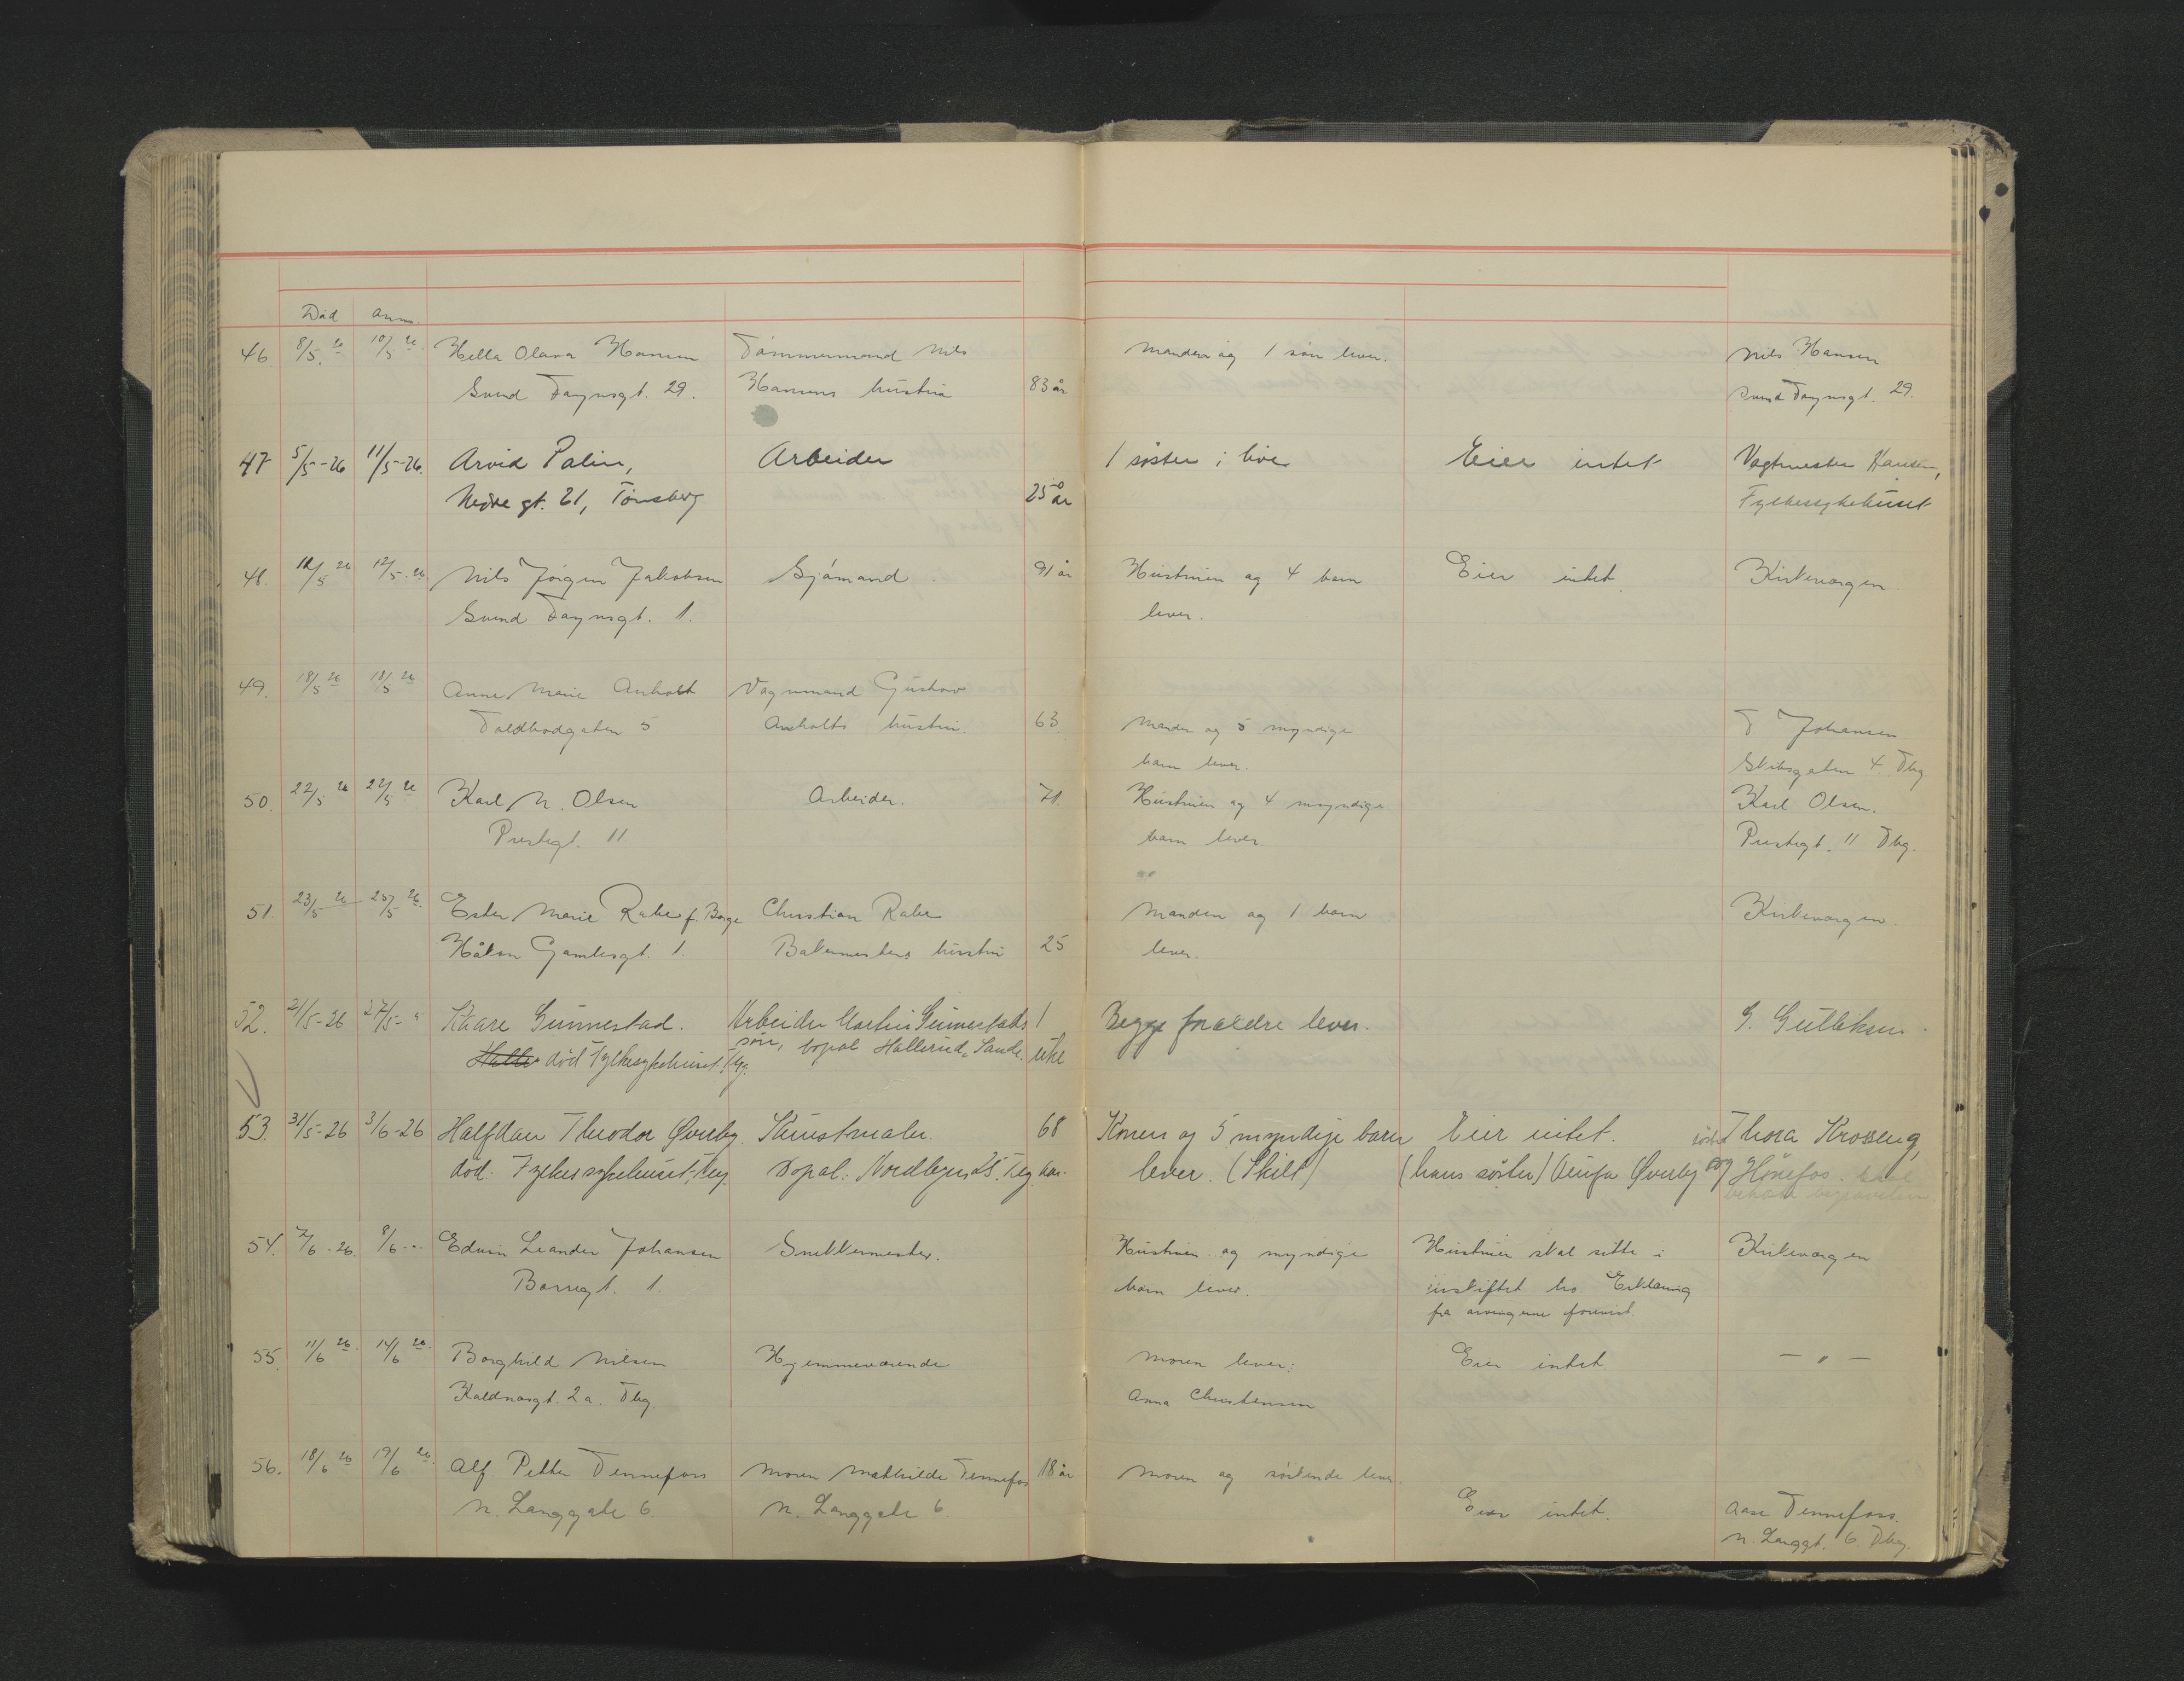 Død Anm.
46. 8/5 26 10/5 26 Hella Olava Hansen Tømmermand Nils Manden og 1 søn lever. Nils Hansen
Svend Foynsgt. 29. Hansens hustru 83 år Svend Foynsgt. 29.
47 5/5-26 11/5-26. Arvid Palin, Arbeider 1 søster i live Eier intet Vagtmester Hansen,
Nedre gt. 21, Tønsberg 25 år Fylkessykehuset
48. 12/5. 26 Nils Jørgen Jakobsen Sjømand. 91 år Hustruen og 4 barn Eier intet. Kirkevergen
Svend Foynsgt. 1. lever.
49. 18/5 26 18/5 26 Anne Marie Anholt Vognmand Gustav
Toldbodgaten 5 Anholts hustru. 63 Manden og 5 myndige T Johansen
barn lever. gaten 4 Tbg
50. 22/5 26 22/5 26 Karl N. Olsen Arbeider. 71. Hustruen og 4 myndige Karl Olsen.
Prestegt. 11 barn lever. Prestegt. 11 Tbg.
51. 23/5 26 25/5 26. Ester Marie Rabe f. Borge Christian Rabe Manden og 1 barn Kirkevergen.
Håkon Gamlesgt. 1. Bakermesters hustru 25 lever.
52. 21/5-26 27/5- " Kaare Gunnestad. Arbeider Martin Gunnestads 1 Begge forældre lever. G. Gulliksen.
død Fylkesykehuset Tbg. søn, bopæl Hallerud, Sande. uke
53. 31/5-26 3/6-26 Halfdan Theodor Øverby. Kunstmaler. 68 Konen og 5 myndige barn Eier intet. Thora Krosseng,
død: Fylkessykehuset, Tbg. Bopæl: Nordbyens 25. Tbg. lever. (Skilt) (hans søster) Øverby og Hønefos.
begravelsen
54. 7/6-26. 8/6-" Edvin Leander Johansen Snekkermester. Hustruen og myndige Hustruen skal sitte i Kirkevergen
Borregt. 1. barn lever. uskiftet bo. Erklæring
fra arvingerne forevist.
55. 11/6 26. 14/6 26. Borghild Nilsen Hjemmeværende Moren lever: Eier intet. — " —
Kaldnæsgt. 2a. Tbg. Anna Christensen
56. 18/6 26 19/6 26. Alf Petter Tennefoss Moren Mathilde Tennefos 18 år Moren og søskende lever.
N. Langgate 6 N. Langgate 6 Eier intet. Aase Tennefoss.
N. Langgt. 6. Tbg.